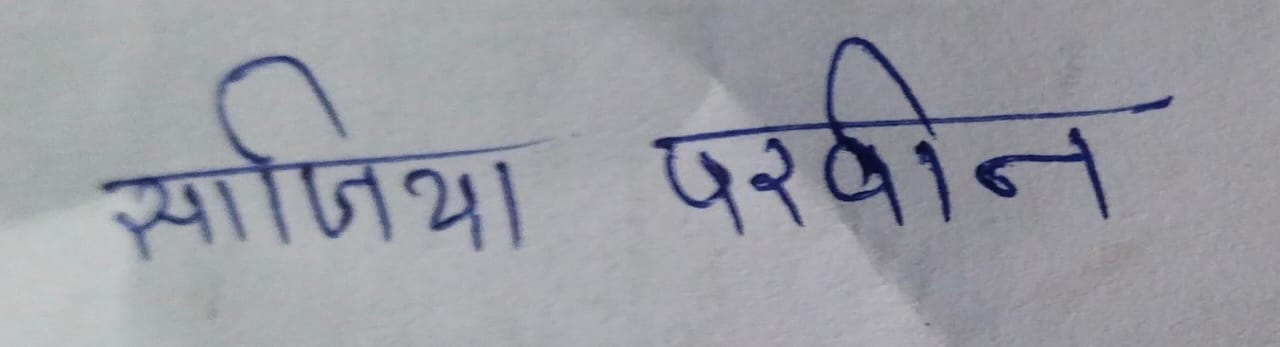 साजिया परवीन